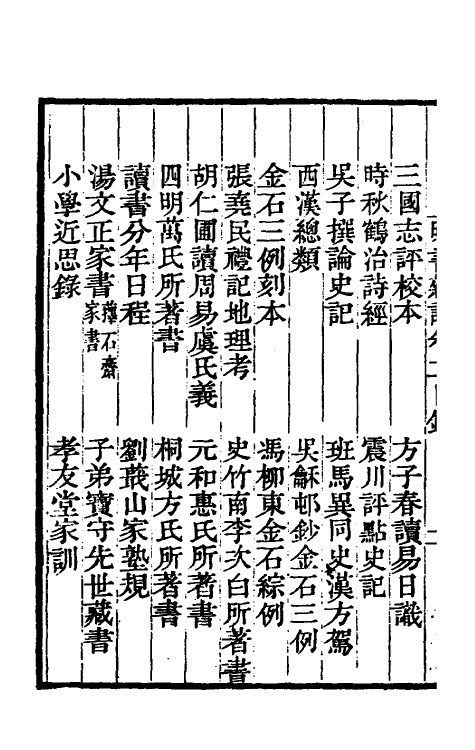 三國志評校本　方子春讀易日識
時秋鶴治詩經　震川評點史記
吳子撰論史記　班馬異同史漢方駕
西漢總類　吳穌邨鈔金石三例
金石三例刻本　馮柳東金石綜例
張堯民禮記地理考　史竹南李次白所著書
胡仁圃讀周易虞氏義　元和惠氏所著書
四明萬氏所著書　桐城方氏所著書
讀書分年日程　劉蕺山家塾規
湯文正家書蘀石齋家書　子弟寶守先世藏書
小學近思錄　孝友堂家訓